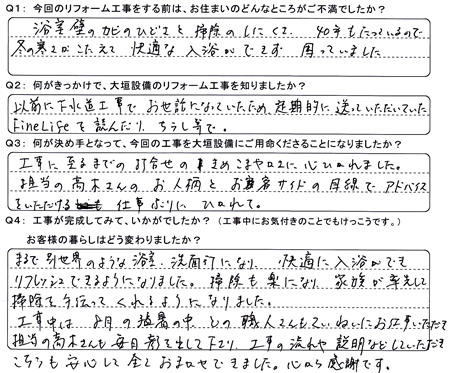 Q1：今回のリフォーム工事をする前は、お住まいのどんなところがご不満でしたか？
浴室壁のカビのひどさと掃除のしにくさ、40年もたっているので
冬の寒さがこたえて快適な入浴ができず困っていました
Q2：何がきっかけで、大垣設備のリフォーム工事を知りましたか？
以前に下水道工事でお世話になっていたため、定期的に送っていただいていた
FineLifeを読んだり、ちらし等で。
Q3：何が決め手となって、今回の工事を大垣設備にご用命くださることになりましたか？
工事に至るまでの打合せのきめこまやかさに心ひかれました。
担当の高木さんのお人柄とお客サイドの目線でアドバイス
をいただける仕事ぶりにひかれて。
Q4：工事が完成してみて、いかがでしたか？（工事中にお気付きのことでもけっこうです。）
お客様の暮らしはどう変わりましたか？
まるで別世界のような浴室、洗面所になり、快適に入浴ができ
リフレッシュできるようになりました。掃除も楽になり、家族が率先して
掃除を手伝ってくれるようになりました。
工事中は8月の猛暑の中、どの職人さんもていねいにお仕事いただいて
担当の高木さんも毎日顔を出して下さり、工事の流れや説明などしていただき
こちらも安心して全ておまかせできました。心から感謝です。